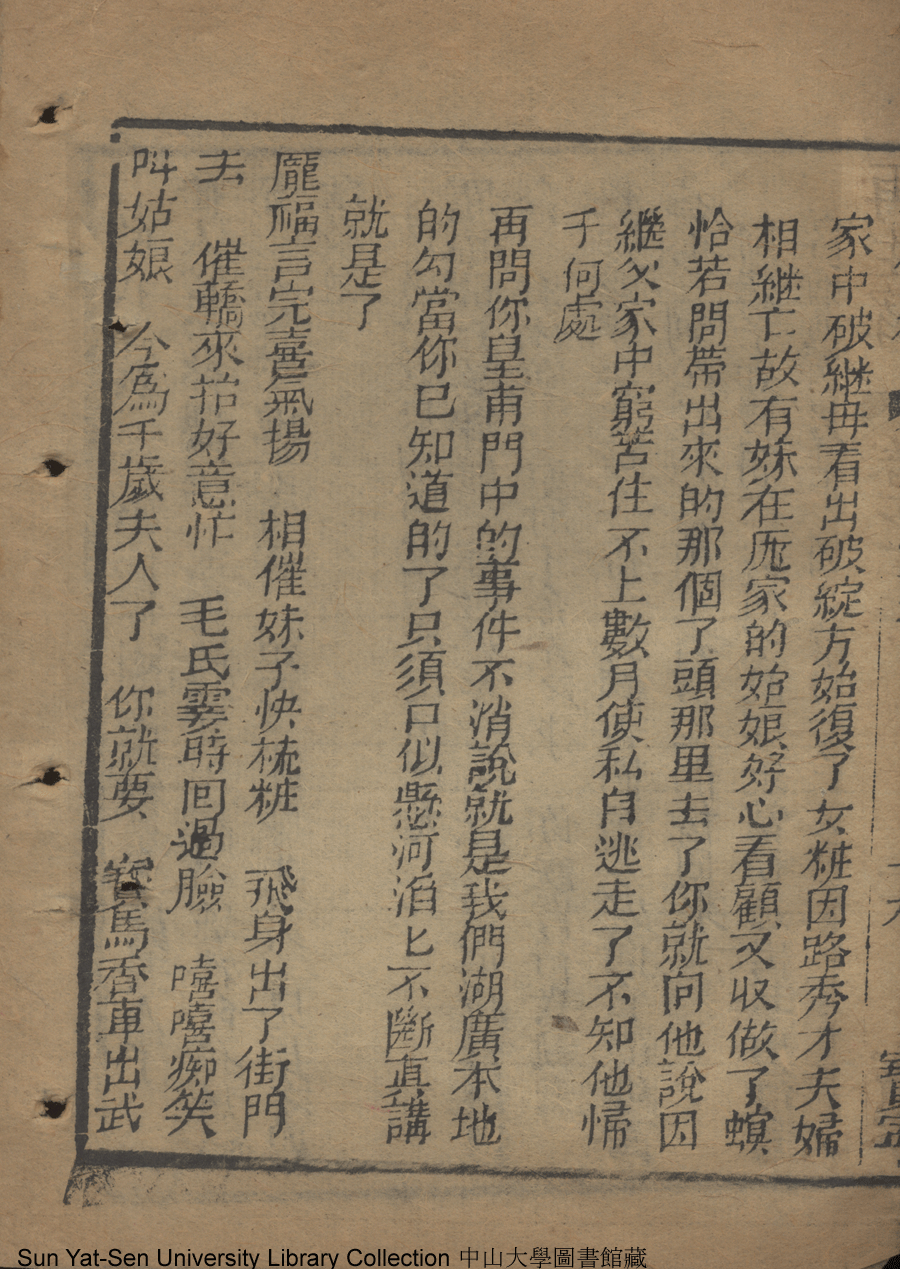 家中破継母看出破綻方始復了女粧因路秀才夫婦
相継亡故有妹在厐家的姑娘好心看顧又収做了螟
恰若問帶出來的那個了頭那里去了你就向他說因
継父家中窮苦住不上數月使私自逃走了不知他帰
于何處
再問你皇甫門中的事件不消說就是我們湖廣本地
的勾當你已知道的了只須口似懸河滔匕不斷真講
就是了
龎福言完喜氣揚　相催妹子快梳粧　飛身出了街門
去　催轎來抬好意忙　毛氏霎時回過臉　嘻嘻痴笑
叫姑娘　今為千歲夫人了　你就要　寳馬香車出武
Sun Yat-Sen University Library Collection 中山大學圖書館藏